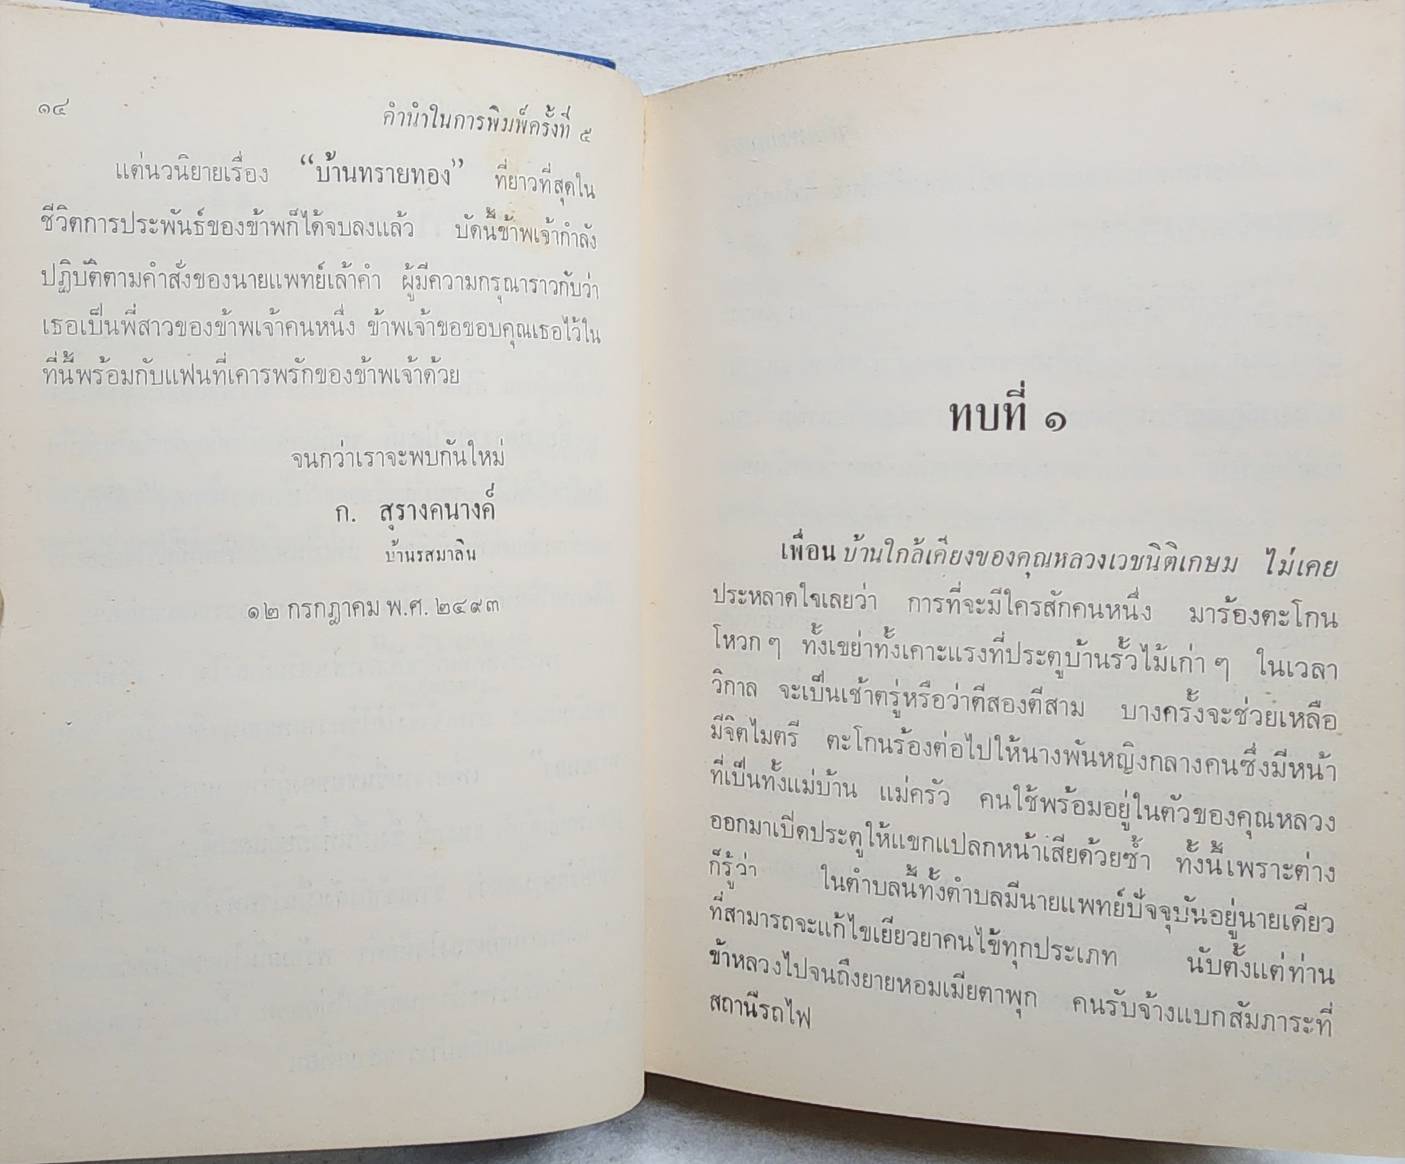 ๑๔
คำนำในการพิมพ์ครั้งที่ ๕
แต่นวนิยายเรื่อง “บ้านทรายทอง” ที่ยาวที่สุดใน
ชีวิตการประพันธ์ของข้าพก็ได้จบลงแล้ว บัดนี้ข้าพเจ้ากำลัง
ปฏิบัติตามคำสั่งของนายแพทย์เล้าคำ ผู้มีความกรุณาราวกับว่า
เธอเป็นพี่สาวของข้าพเจ้าคนหนึ่ง ข้าพเจ้าขอขอบคุณเธอไว้ใน
ที่นี้พร้อมกับแฟนที่เคารพรักของข้าพเจ้าด้วย
จนกว่าเราจะพบกันใหม่
ก. สุรางคนางค์
บ้านรสมาลิน
๑๒ กรกฎาคม พ.ศ. ๒๔๙๓
ทบที่ ๑
เพื่อนบ้านใกล้เคียงของคุณหลวงเวชนิติเกษม ไม่เคย
ประหลาดใจเลยว่า การที่จะมีใครสักคนหนึ่ง มาร้องตะโกน
โหวกๆ ทั้งเขย่าทั้งเคาะแรงที่ประตูบ้านรั้วไม้เก่าๆ ในเวลา
วิกาล จะเป็นเช้าตรู่หรือว่าตีสองตีสาม บางครั้งจะช่วยเหลือ
มีจิตไมตรี ตะโกนร้องต่อไปให้นางพันหญิงกลางคนซึ่งมีหน้า
ที่เป็นทั้งแม่บ้าน แม่ครัว คนใช้พร้อมอยู่ในตัวของคุณหลวง
ออกมาเปิดประตูให้แขกแปลกหน้าเสียด้วยซ้ำ ทั้งนี้เพราะต่าง
ก็รู้ว่า ในตำบลนี้ทั้งตำบลมีนายแพทย์ปัจจุบันอยู่นายเดียว
ที่สามารถจะแก้ไขเยียวยาคนไข้ทุกประเภท นับตั้งแต่ท่าน
ข้าหลวงไปจนถึงยายหอมเมียตาพุก คนรับจ้างแบกสัมภาระที่
สถานีรถไฟ